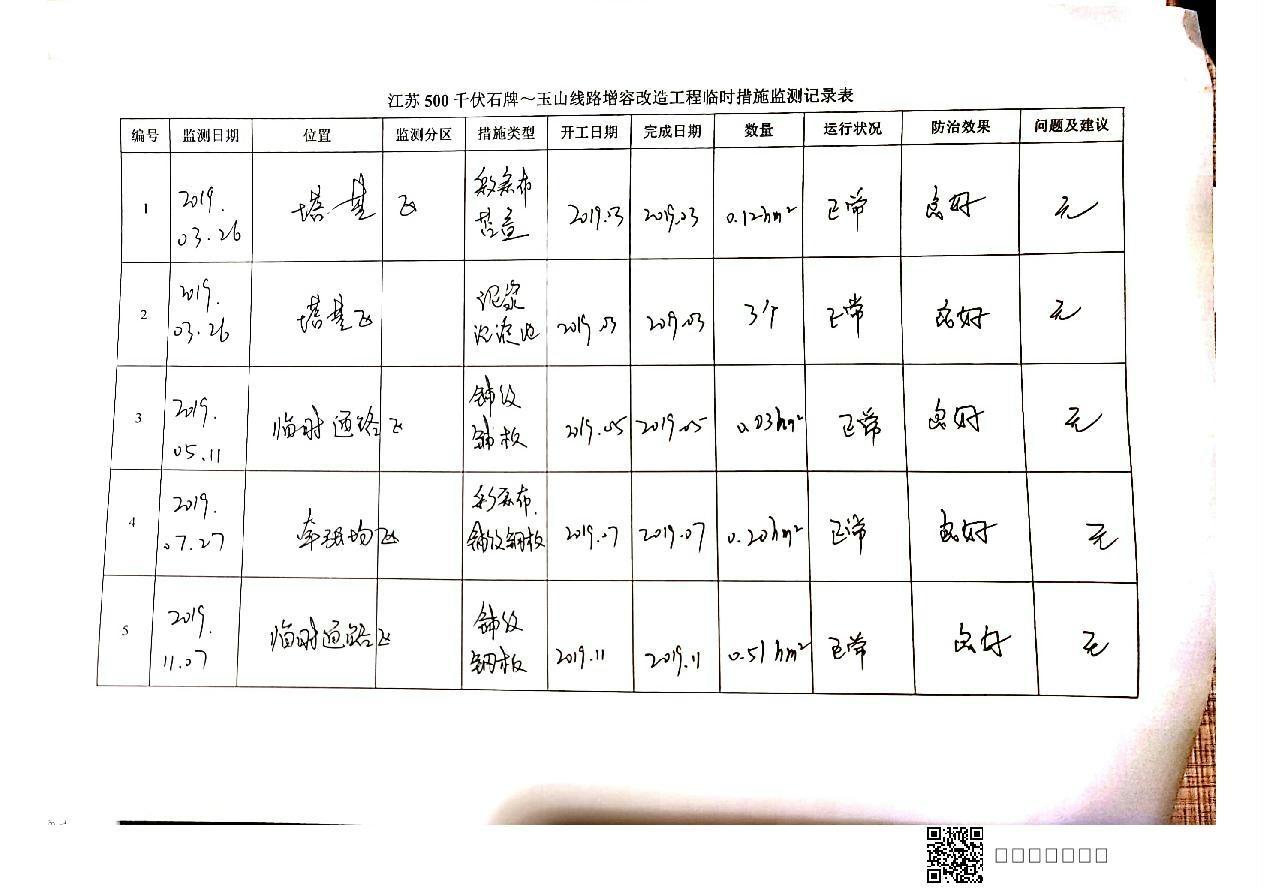 江苏 500 千伏石牌～玉山线路增容改造工程临时措施监测记录表
编号 监测日期 位置 监测分区 措施类型 开工日期 完成日期 数量 运行状况 防治效果 问题及建议
1 2019.03.26 塔基区 彩条布苫盖 2019.03 2019.03 0.12hm² 正常 良好 无
2 2019.03.26 塔基区 泥浆沉淀池 2019.03 2019.03 3个 正常 良好 无
3 2019.05.11 临时道路区 铺设 2019.05 2019.05 0.03hm² 正常 良好 无
4 2019.07.27 牵张场区 彩条布、铺设钢板 2019.07 2019.07 0.20hm² 正常 良好 无
5 2019.11.07 临时道路区 铺设钢板 2019.11 2019.11 0.51hm² 正常 良好 无